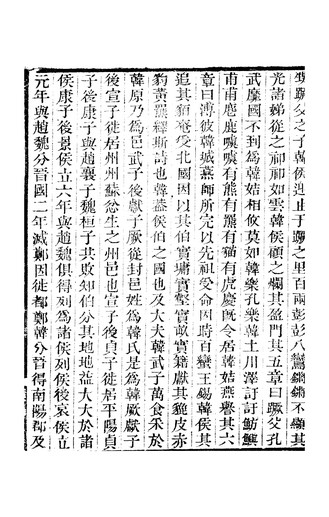 蹷蹶父之子韓侯迎止于蹶之里百兩彭彭八鸞鏘鏘不顯其
光諸娣從之祁祁如雲韓侯顧之爛其盈門其五章曰蹶父孔
武靡國不到爲韓姞相攸莫如韓樂孔樂韓土川澤訏訏魴鱮
甫甫麀鹿噳噳有熊有羆有貓有虎慶旣令居韓姞燕譽其六
章曰溥彼韓城燕師所完以先祖受命因時百蠻王錫韓侯其
追其貊奄受北國因以其伯實墉實壑實畝實籍獻其貔皮赤
豹黃羆繹斯詩也韓蓋侯伯之國也及大夫韓武子萬食采於
韓原乃爲邑武子後獻子厥從封邑姓韓氏是爲韓厥獻子
後宣子徙居州州蘇忿生之州邑也宣子後貞子徙居平陽貞
子後康子與趙襄子魏桓子其敗知伯分其地地益大大於諸
侯康子後景侯立六年與趙魏俱得列爲諸侯列侯後哀侯立
元年與趙魏分晉國二年滅鄭因徙都鄭韓分晉得南陽郡及